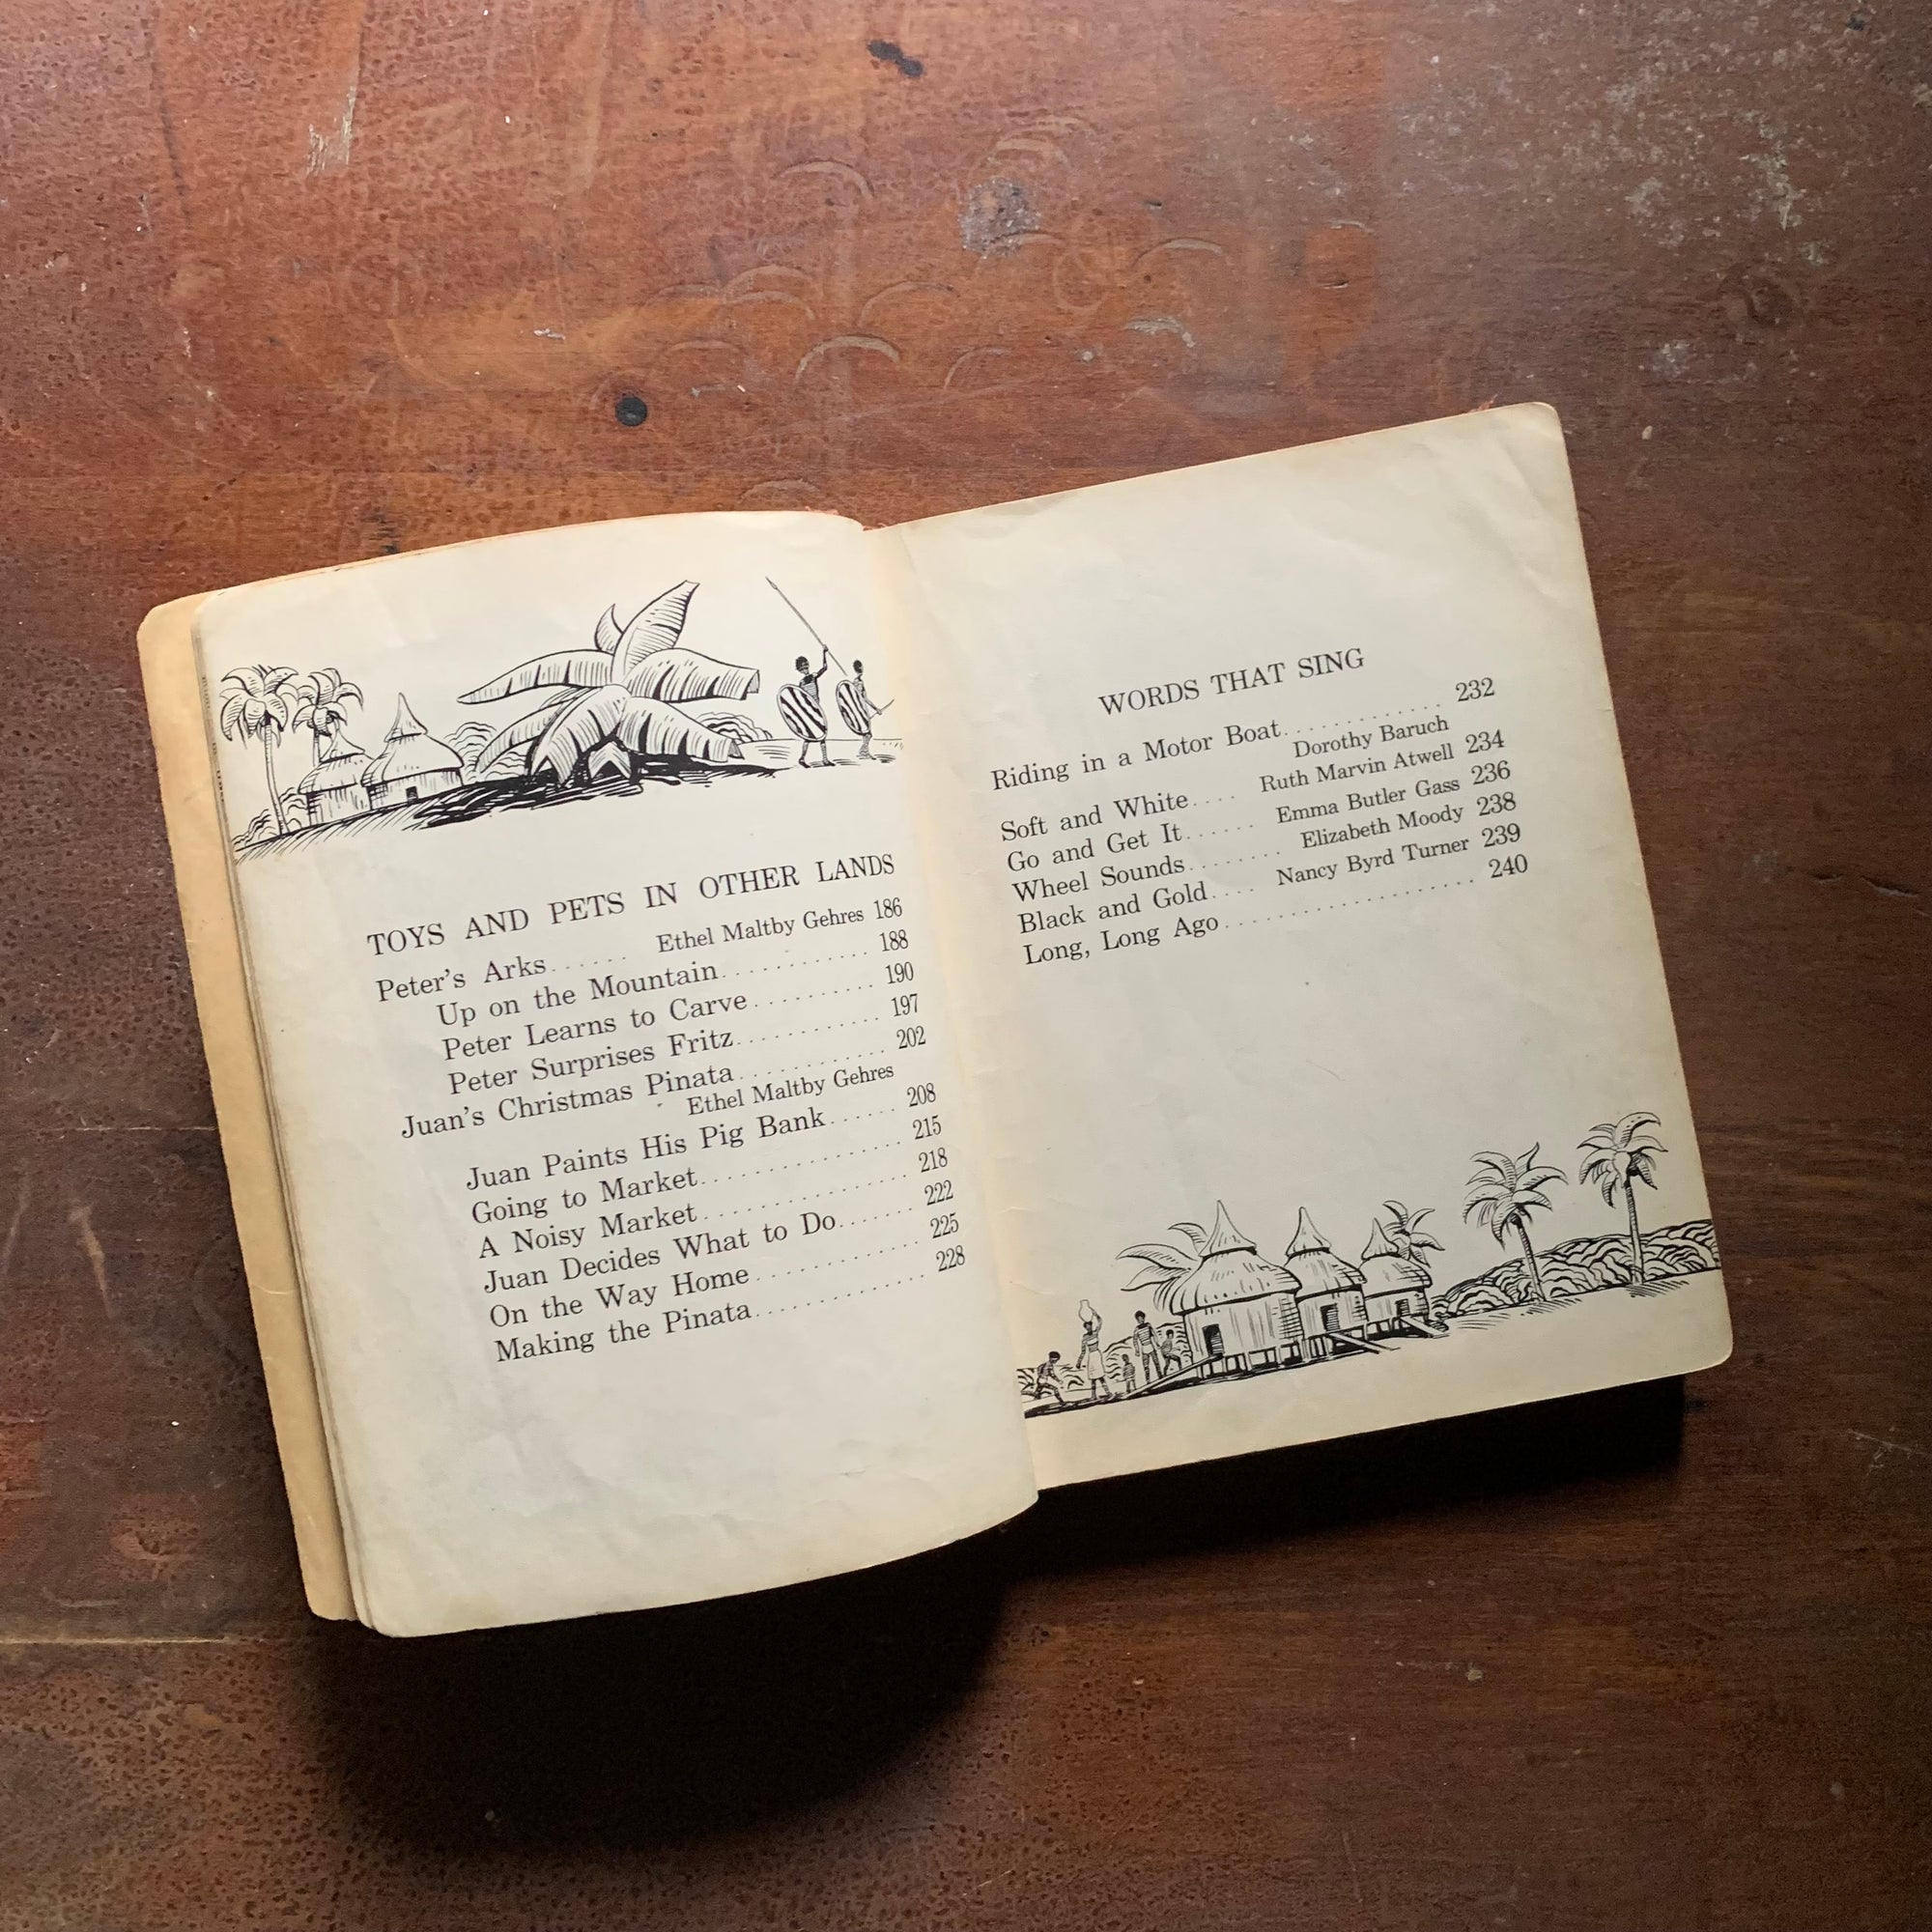 TOYS AND PETS IN OTHER LANDS
Peter's Arks...... Ethel Maltby Gehres 186
Up on the Mountain............ 188
Peter Learns to Carve.......... 190
Peter Surprises Fritz........... 197
Juan's Christmas Pinata........... 202
Ethel Maltby Gehres
Juan Paints His Pig Bank...... 208
Going to Market................ 215
A Noisy Market................ 218
Juan Decides What to Do....... 222
On the Way Home............. 225
Making the Pinata............. 228
WORDS THAT SING
Riding in a Motor Boat............. 232
Dorothy Baruch
Soft and White.... Ruth Marvin Atwell 234
Go and Get It...... Emma Butler Gass 236
Wheel Sounds........ Elizabeth Moody 238
Black and Gold.... Nancy Byrd Turner 239
Long, Long Ago.................... 240